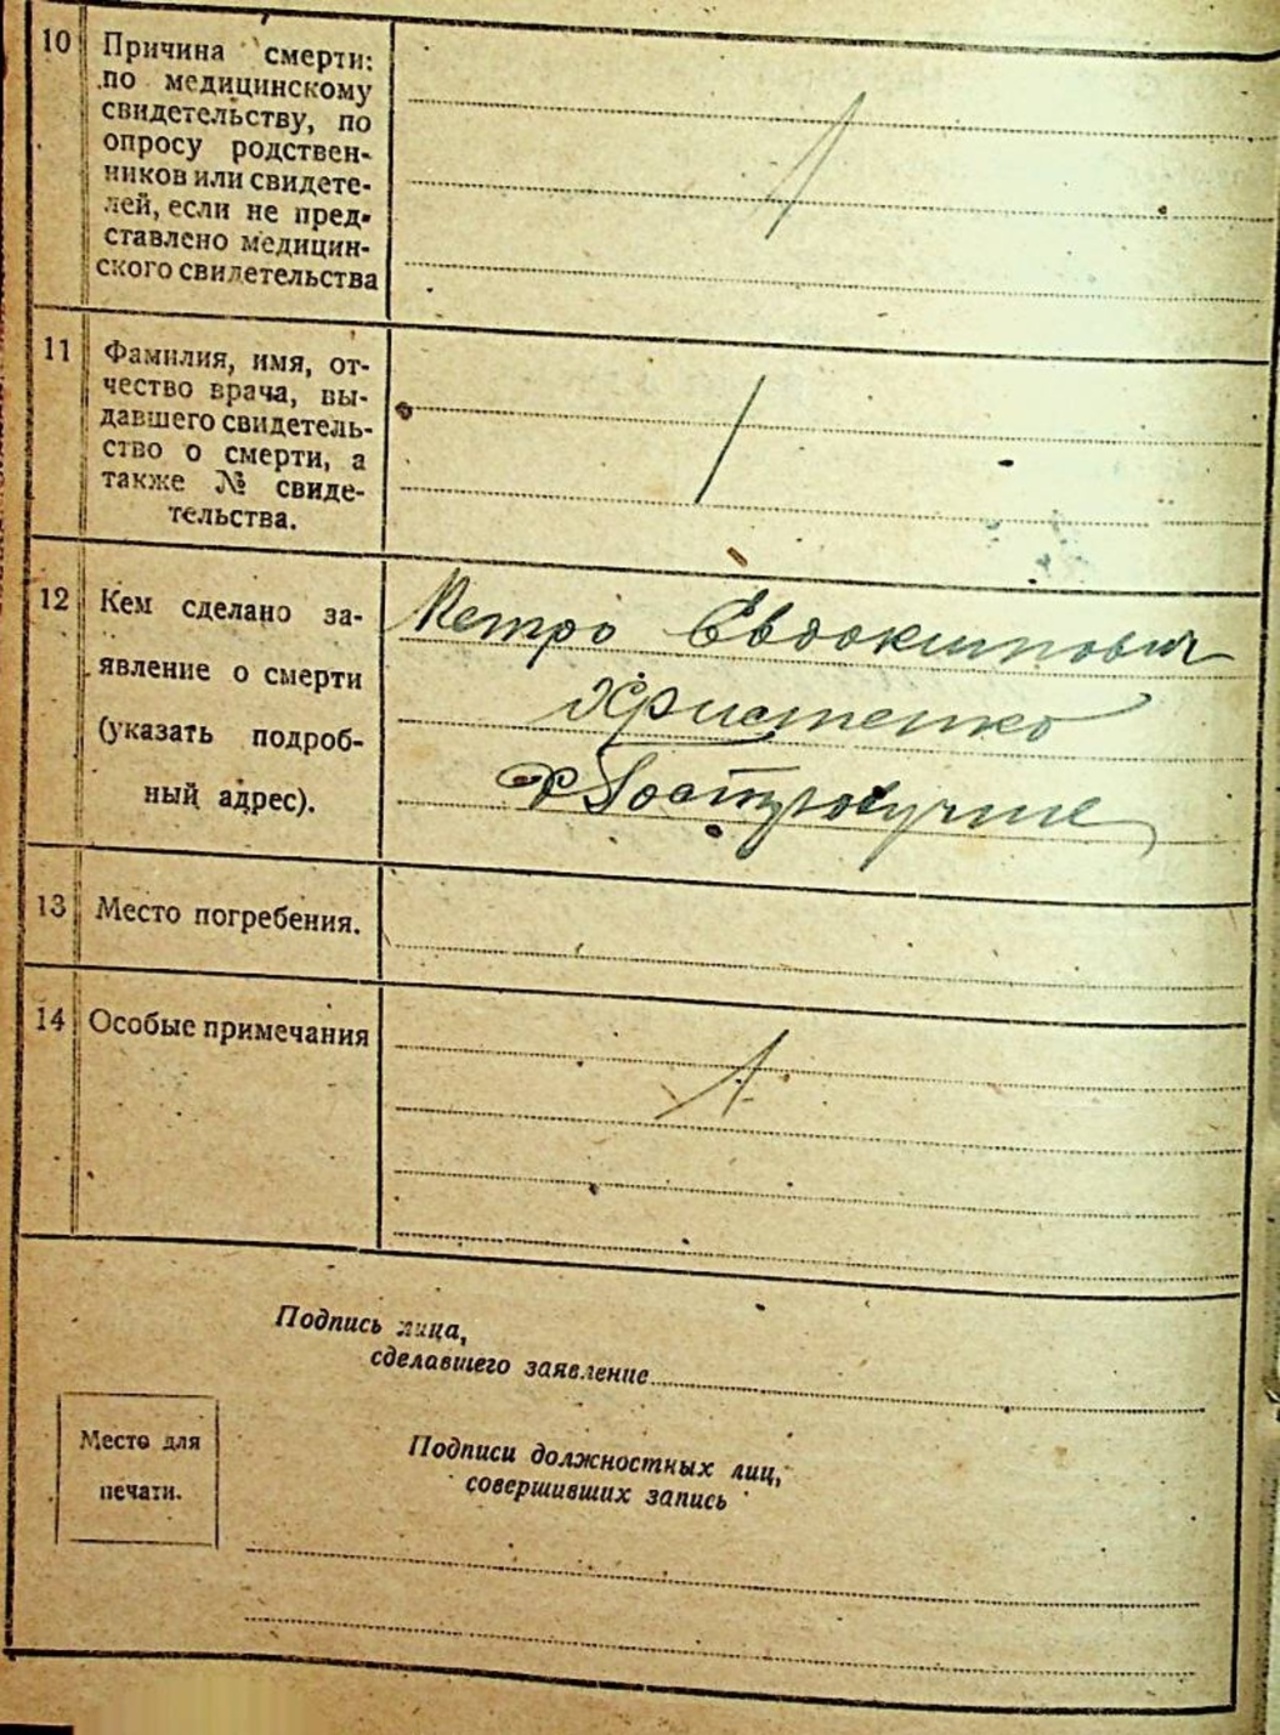 10 Причина смерти:
по медицинскому
свидетельству, по
опросу родствен-
ников или свидете-
лей, если не пред-
ставлено медицин-
ского свидетельства
11 Фамилия, имя, от-
чество врача, вы-
давшего свидетель-
ство о смерти, а
также № свиде-
тельства.
12 Кем сделано за-
явление о смерти
(указать подроб-
ный адрес).
Петро Евдокимович
Христенко
13 Место погребения.
14 Особые примечания
Подпись лица,
сделавшего заявление
Место для
печати.
Подписи должностных лиц,
совершивших запись